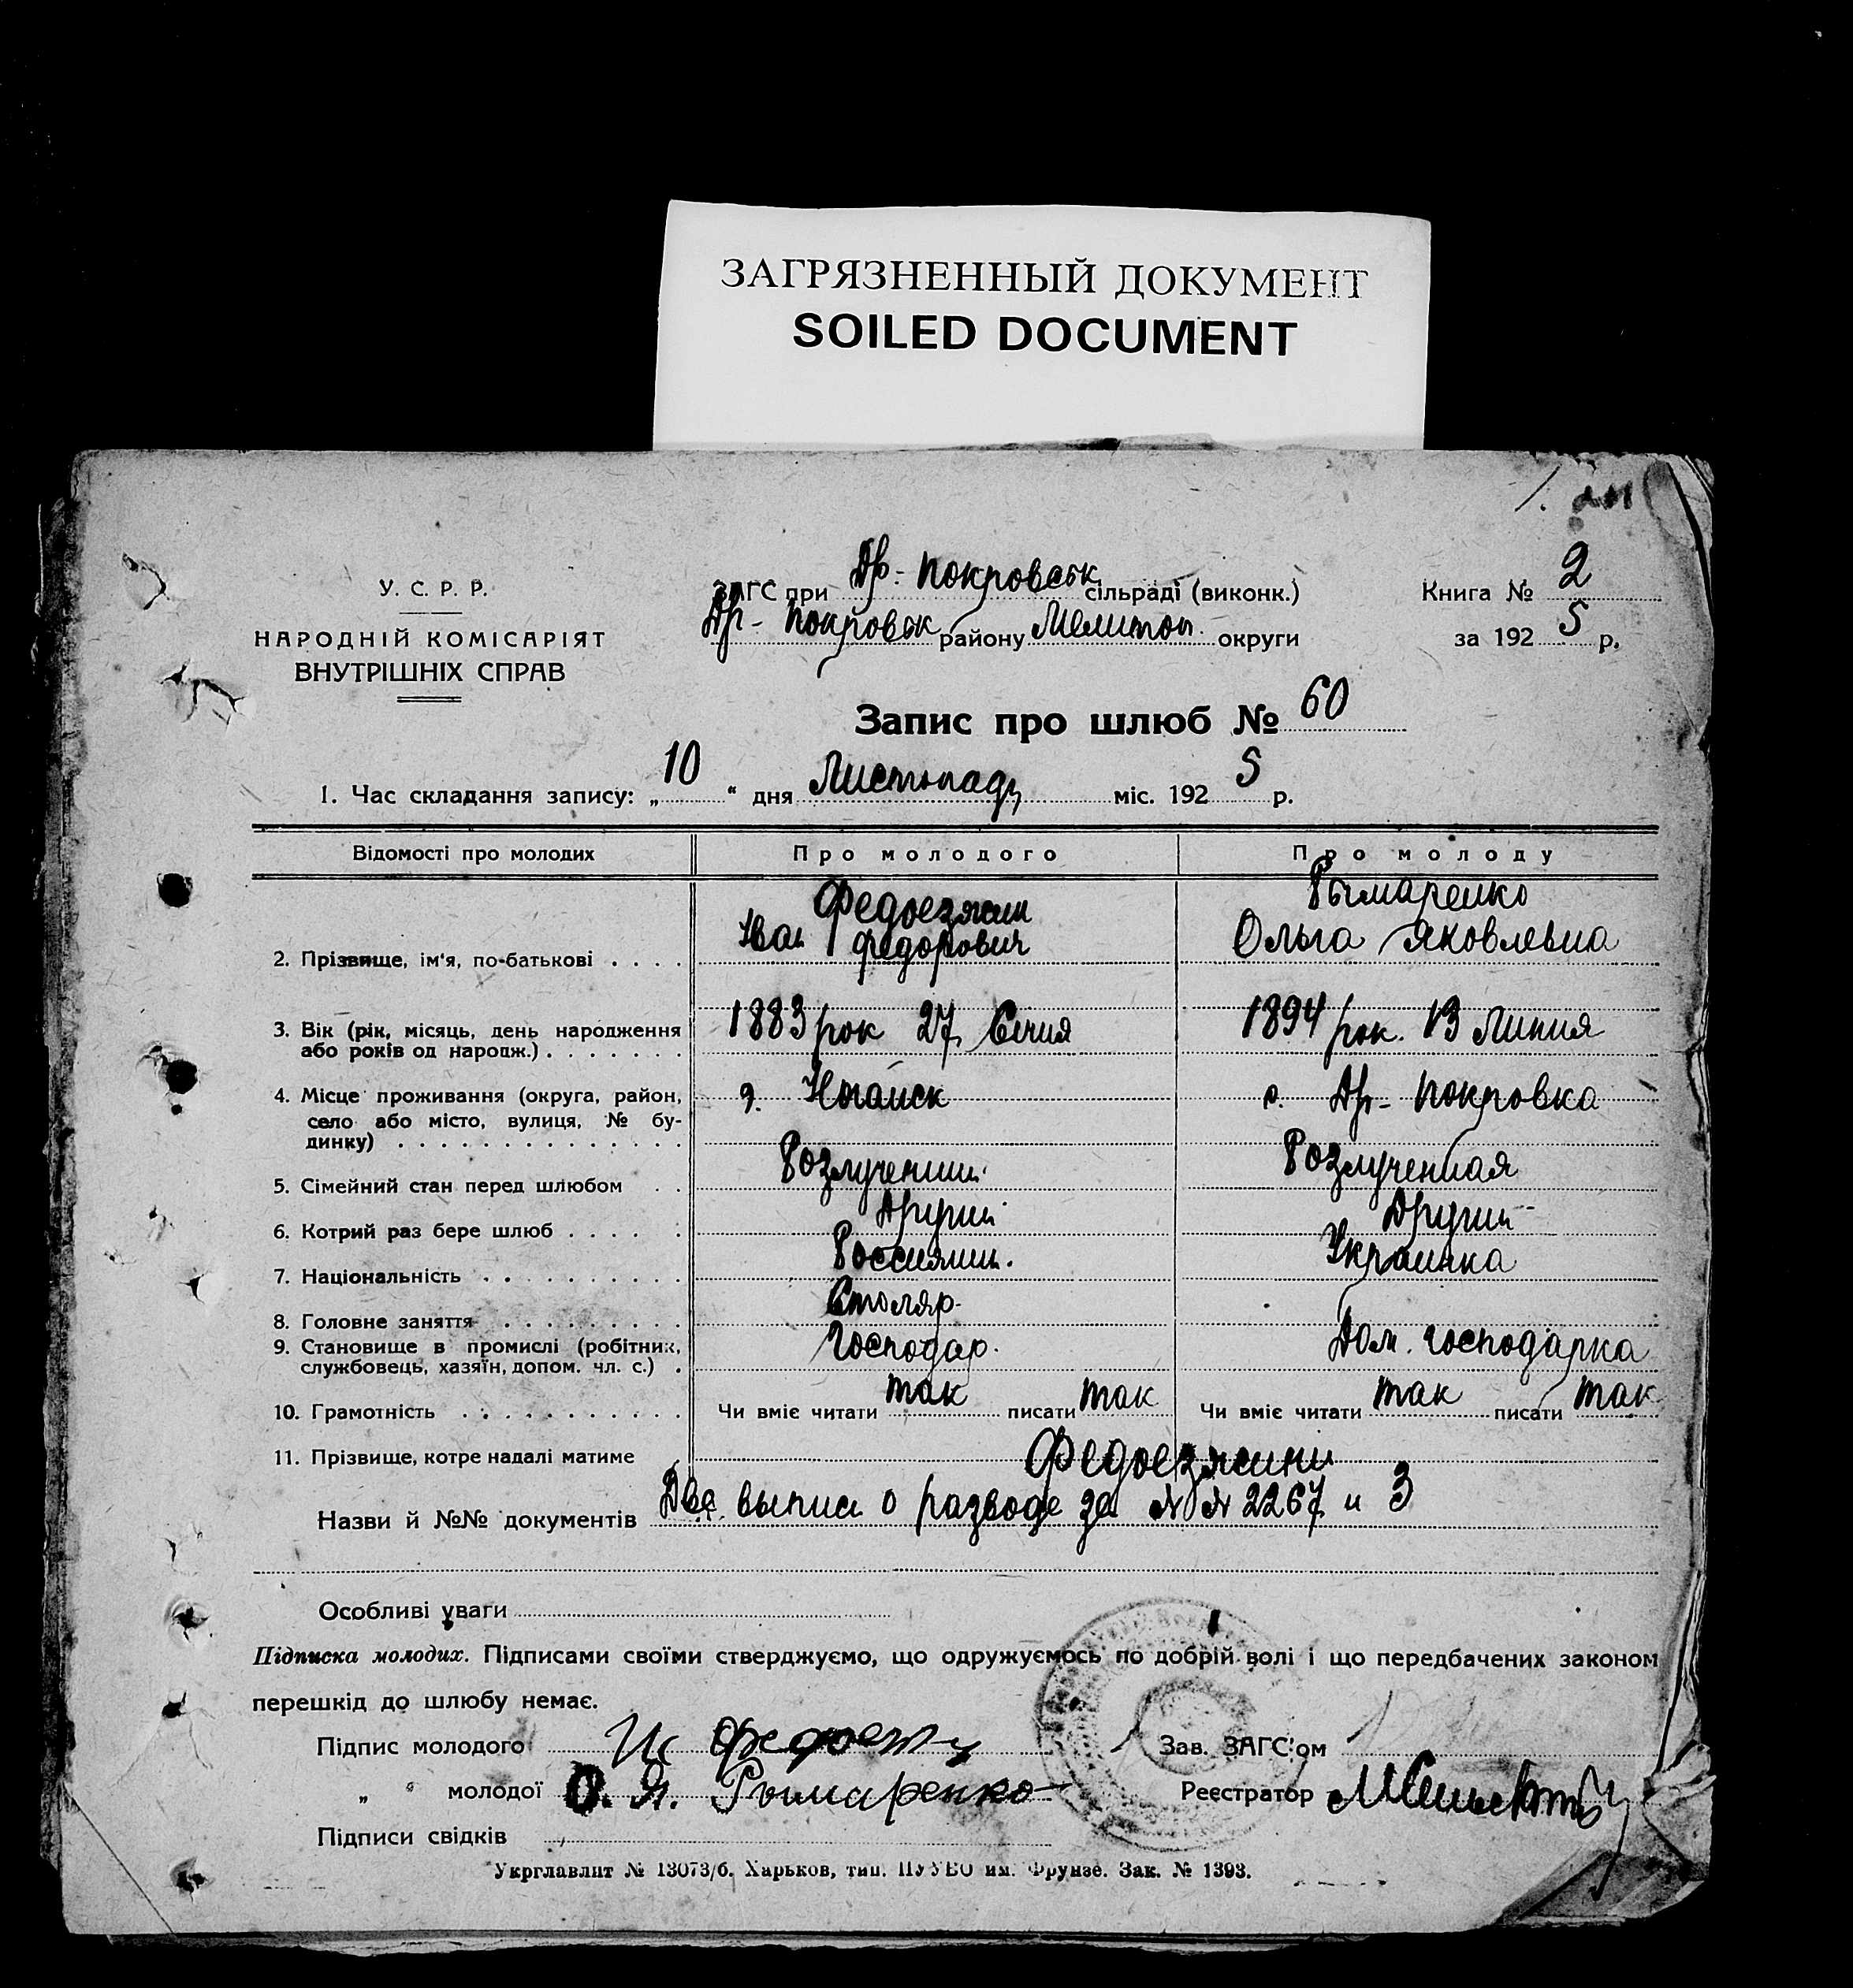 ЗАГРЯЗНЕННЫЙ ДОКУМЕНТ
SOILED DOCUMENT
У. С. Р. Р.
НАРОДНІЙ КОМІСАРІЯТ
ВНУТРІШНІХ СПРАВ
ЗАГС при Др.-Покровськ сільраді (виконк.)
Др.-Покровськ району Мелитоп. округи
Книга № 2
за 1925 р.
Запис про шлюб № 60
1. Час складання запису: „10“ дня Листопаду міс. 1925 р.
Відомості про молодих Про молодого Про молоду
2. Прізвище, ім'я, по-батькові . . . .
Федоезжин
Іван Федорович
Рымаренко
Ольга Яковлевна
3. Вік (рік, місяць, день народження
або років од нарощ.) . . . . . . .
1883 рок 27 Січня
1894 рок. 13 Липня
4. Місце проживання (округа, район,
село або місто, вулиця, № бу-
динку) . . . . . . . . . . . . . .
г. Ногайск
с. Др-Покровка
5. Сімейний стан перед шлюбом . . Розлучений Розлученная
6. Котрий раз бере шлюб . . . . . Другий Другий
7. Національність . . . . . . . . . . Россиянин. Украинка
8. Головне заняття . . . . . . . . . Столяр.
9. Становище в промислі (робітник,
службовець, хазяїн, допом. чл. с.) .
Господар.
Дом. господарка
10. Грамотність . . . . . . . . . . Чи вміє читати так писати так Чи вміє читати так писати так
11. Прізвище, котре надалі матиме Федоезжини
Назви й №№ документів Две выписи о разводе за №№ 2267 и 3
Особливі уваги
Підписка молодих. Підписами своїми стверджуємо, що одружуємось по добрій волі і що передбачених законом
перешкід до шлюбу немає.
Підпис молодого
Зав. ЗАГС'ом
„ “ молодої О. Я. Рымаренко
Реєстратор
Підписи свідків
Укрглавлит № 13073/б. Харьков, тип. ПУУВО им. Фрунзе. Зак. № 1393.